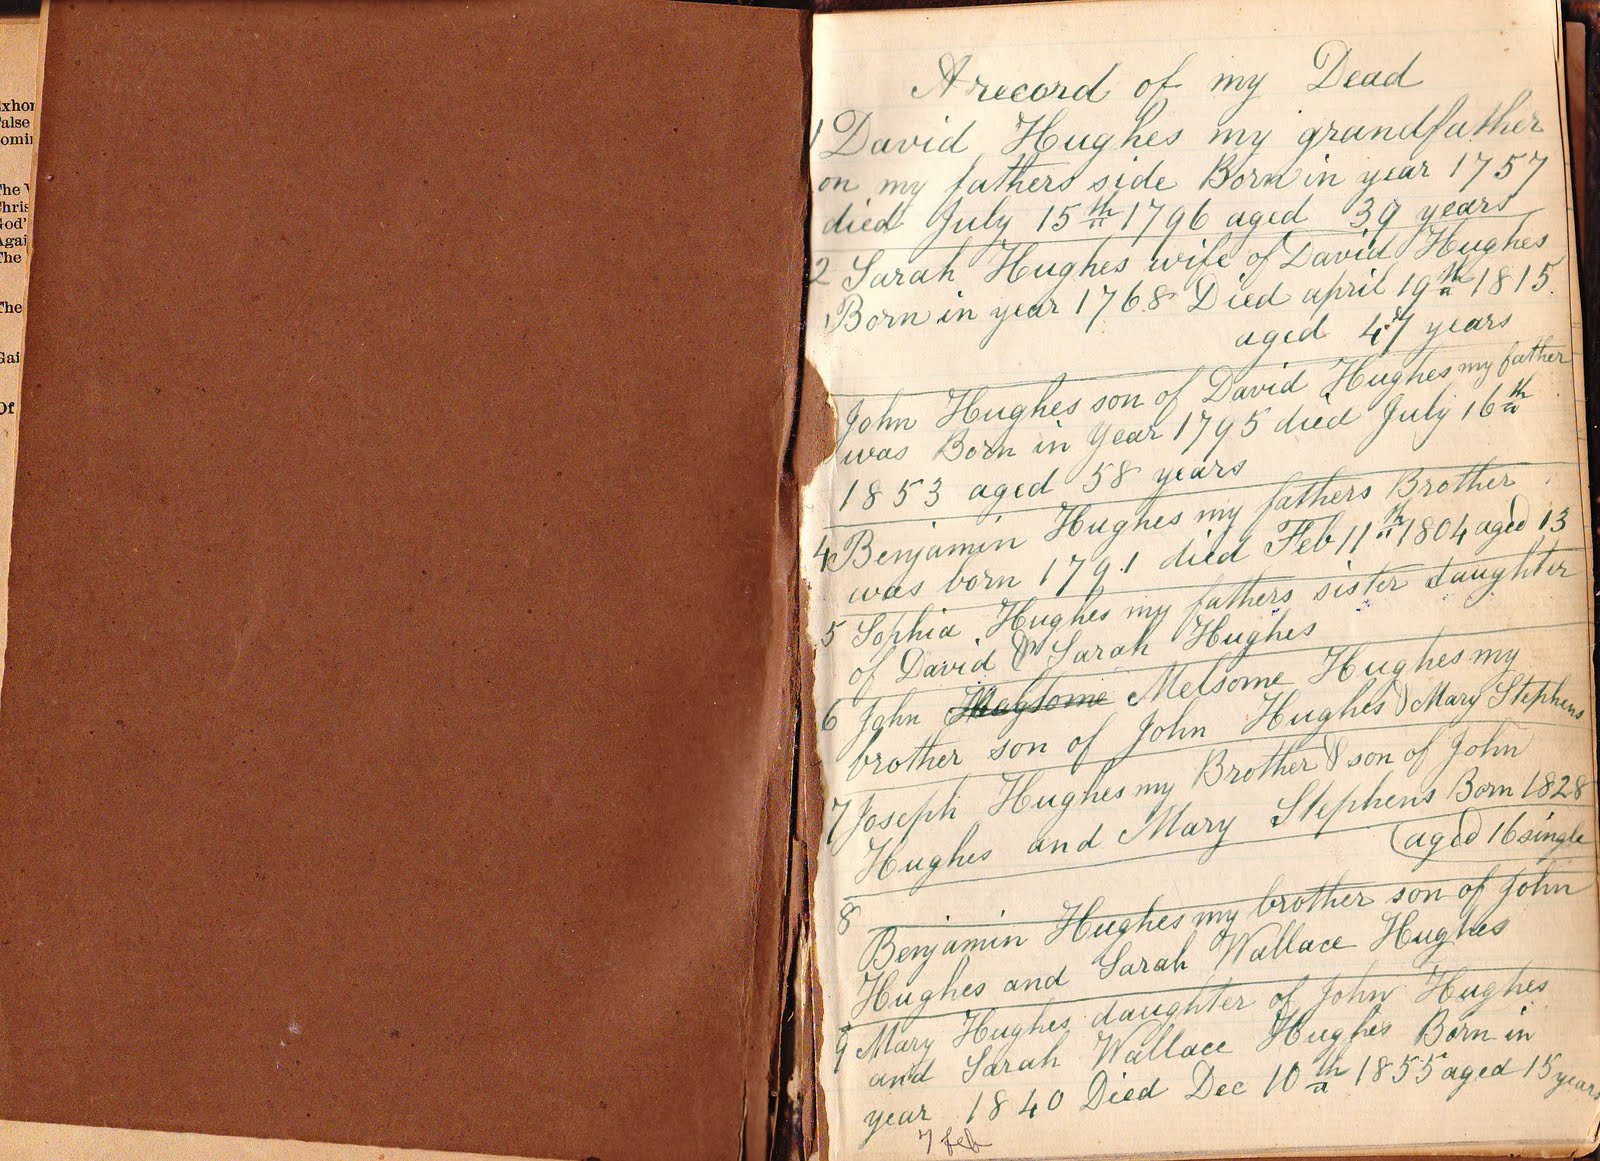 xhor
alse
omin
The V
hris
God'
Agai
The
The
Gai
Of
A record of my Dead
1 David Hughes my grandfather
on my fathers side Born in year 1757
died July 15th 1796 aged 39 years
2 Sarah Hughes wife of David Hughes
Born in year 1768 Died april 19th 1815
aged 47 years
John Hughes son of David Hughes my father
was Born in year 1795 died July 16th
1853 aged 58 years
4 Benjamin Hughes my fathers Brother
was born 1791 died Feb 11th 1804 aged 13
5 Sophia Hughes my fathers sister daughter
of David & Sarah Hughes
6 John Melsome Hughes my
brother son of John Hughes & Mary Stephens
7 Joseph Hughes my Brother & son of John
Hughes and Mary Stephens Born 1828
(aged) 16 single
8
Benjamin Hughes my brother son of John
Hughes and Sarah Wallace Hughes
9 Mary Hughes daughter of John Hughes
and Sarah Wallace Hughes Born in
year 1840 Died Dec 10th 1855 aged 15 years
7 feb